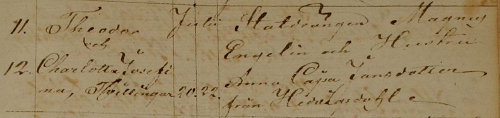 11. Theodor Juli Statdrängen Magnus
och Engelin och Hustru
12. Charlotta Josefi Anna Cajsa Jansdotter
na, Tvillingar 20. 22 från